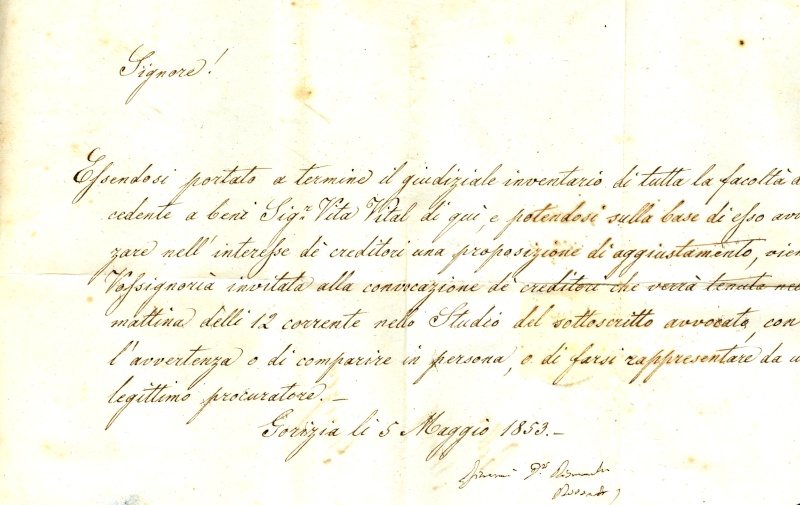 Signore!
Essendosi portato a termine il giudiziale inventario di tutta la facoltà d
cedente a beni Sigr. Vita Vital di quì, e potendosi sulla base di esso avv
zare nell'interesse dè creditori una proposizione di aggiustamento, vien
Vossignorià invitata alla convocazione de creditori che verrà tenuta nel
mattina delli 12 corrente nello Studio del sottoscritto avvocato, con
l'avvertenza o di comparire in persona, o di farsi rappresentare da u
legittimo procuratore.—
Gorizia li 5 Maggio 1853.—
Giovanni Dr.